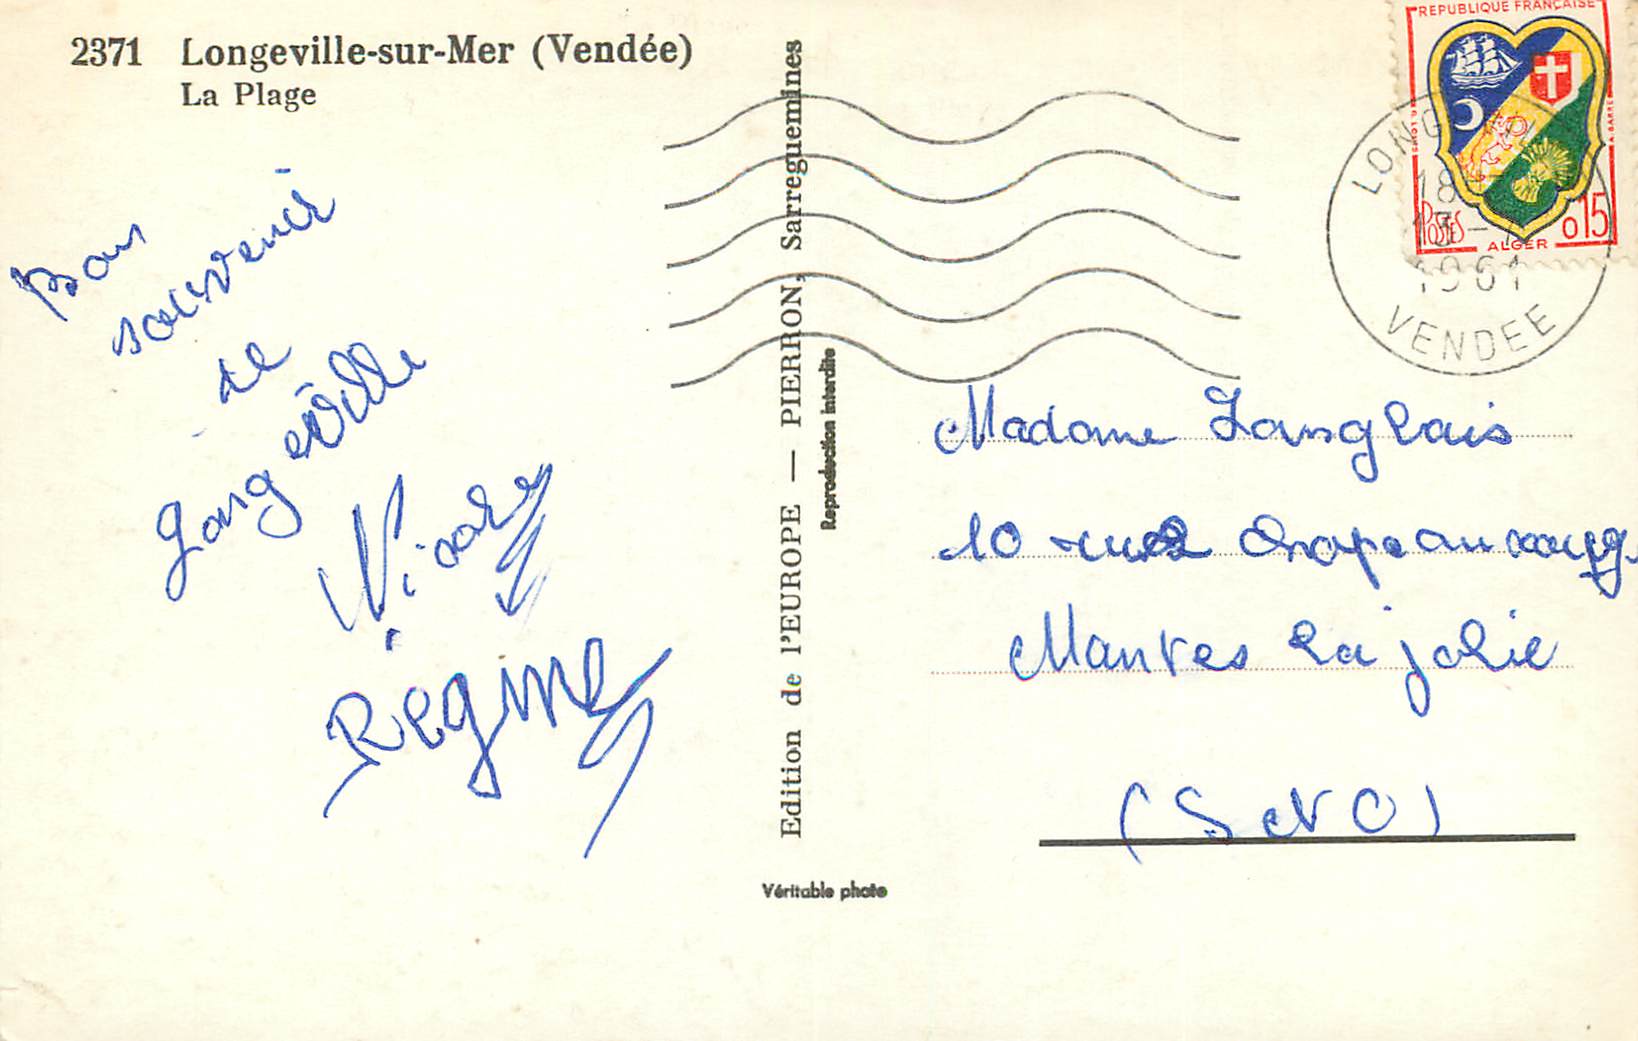 2371 Longeville-sur-Mer (Vendée)
La Plage
Bons
souvenir
de
Longeville
Nicole
Régine
Edition de l'EUROPE — PIERRON, Sarreguemines
Reproduction interdite
Véritable photo
REPUBLIQUE FRANÇAISE
POSTES
ALGER
0,15
18
13 - 7
1961
VENDEE
Madame Langlais
10 rue Chapeau rouge
Mantes la jolie
(S et O)